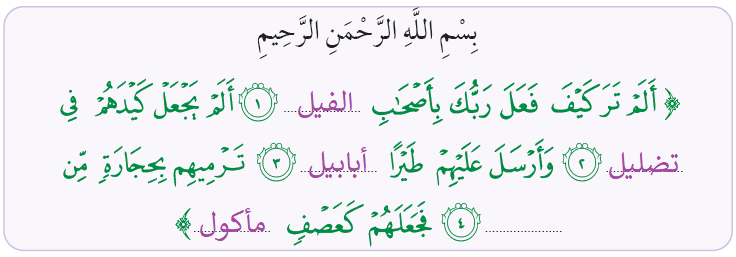 بِسْمِ اللَّهِ الرَّحْمَنِ الرَّحِيمِ
﴿ أَلَمْ تَرَ كَيْفَ فَعَلَ رَبُّكَ بِأَصْحَٰبِ الفيل ۝١ أَلَمْ يَجْعَلْ كَيْدَهُمْ فِى
تضليل ۝٢ وَأَرْسَلَ عَلَيْهِمْ طَيْرًا أبابيل ۝٣ تَرْمِيهِم بِحِجَارَةٍ مِّن
............ ۝٤ فَجَعَلَهُمْ كَعَصْفٍ مأكول ﴾